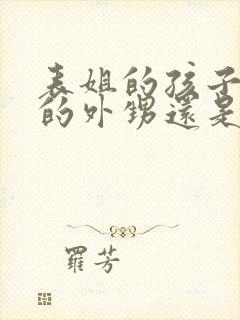 表姐的孩子
的外甥還是
羅芳